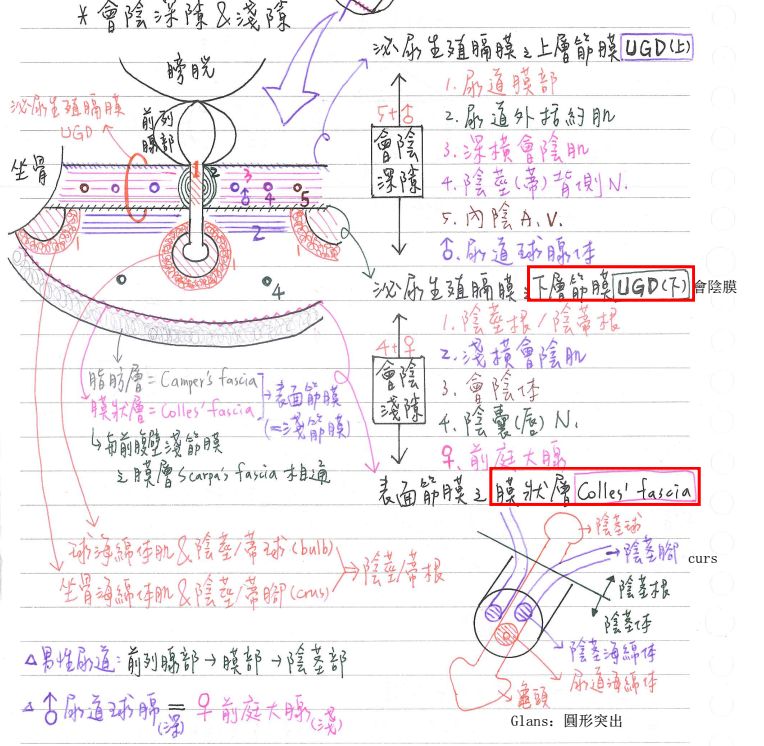 *會陰深隙&淺隙
膀胱
前列腺部
泌尿生殖膈膜
UGD
坐骨
1 2 3 ♂ 4 5
1 2 1
4
泌尿生殖膈膜之上層筋膜 UGD(上)
5+♂
會陰深隙
1. 尿道膜部
2. 尿道外括約肌
3. 深橫會陰肌
4. 陰莖(蒂)背側N.
5. 內陰A.V.
♂. 尿道球腺体
泌尿生殖膈膜之下層筋膜 UGD(下) 會陰膜
4+♀
會陰淺隙
1. 陰莖根/陰蒂根
2. 淺橫會陰肌
3. 會陰体
4. 陰囊(唇)N.
♀. 前庭大腺
表面筋膜之膜狀層 Colles' fascia
脂肪層=Camper's fascia
膜狀層=Colles' fascia
→表面筋膜
(=淺筋膜)
↳與前腹壁淺筋膜
之膜層Scarpa's fascia相通
球海綿体肌&陰莖/蒂球(bulb)
坐骨海綿体肌&陰莖/蒂腳(crus)
→陰莖/蒂根
陰莖球
陰莖腳 curs
陰莖根
陰莖体
陰莖海綿体
尿道海綿体
龜頭
Glans: 圓形突出
△男性尿道:前列腺部→膜部→陰莖部
△♂尿道球腺(深)=♀前庭大腺(淺)